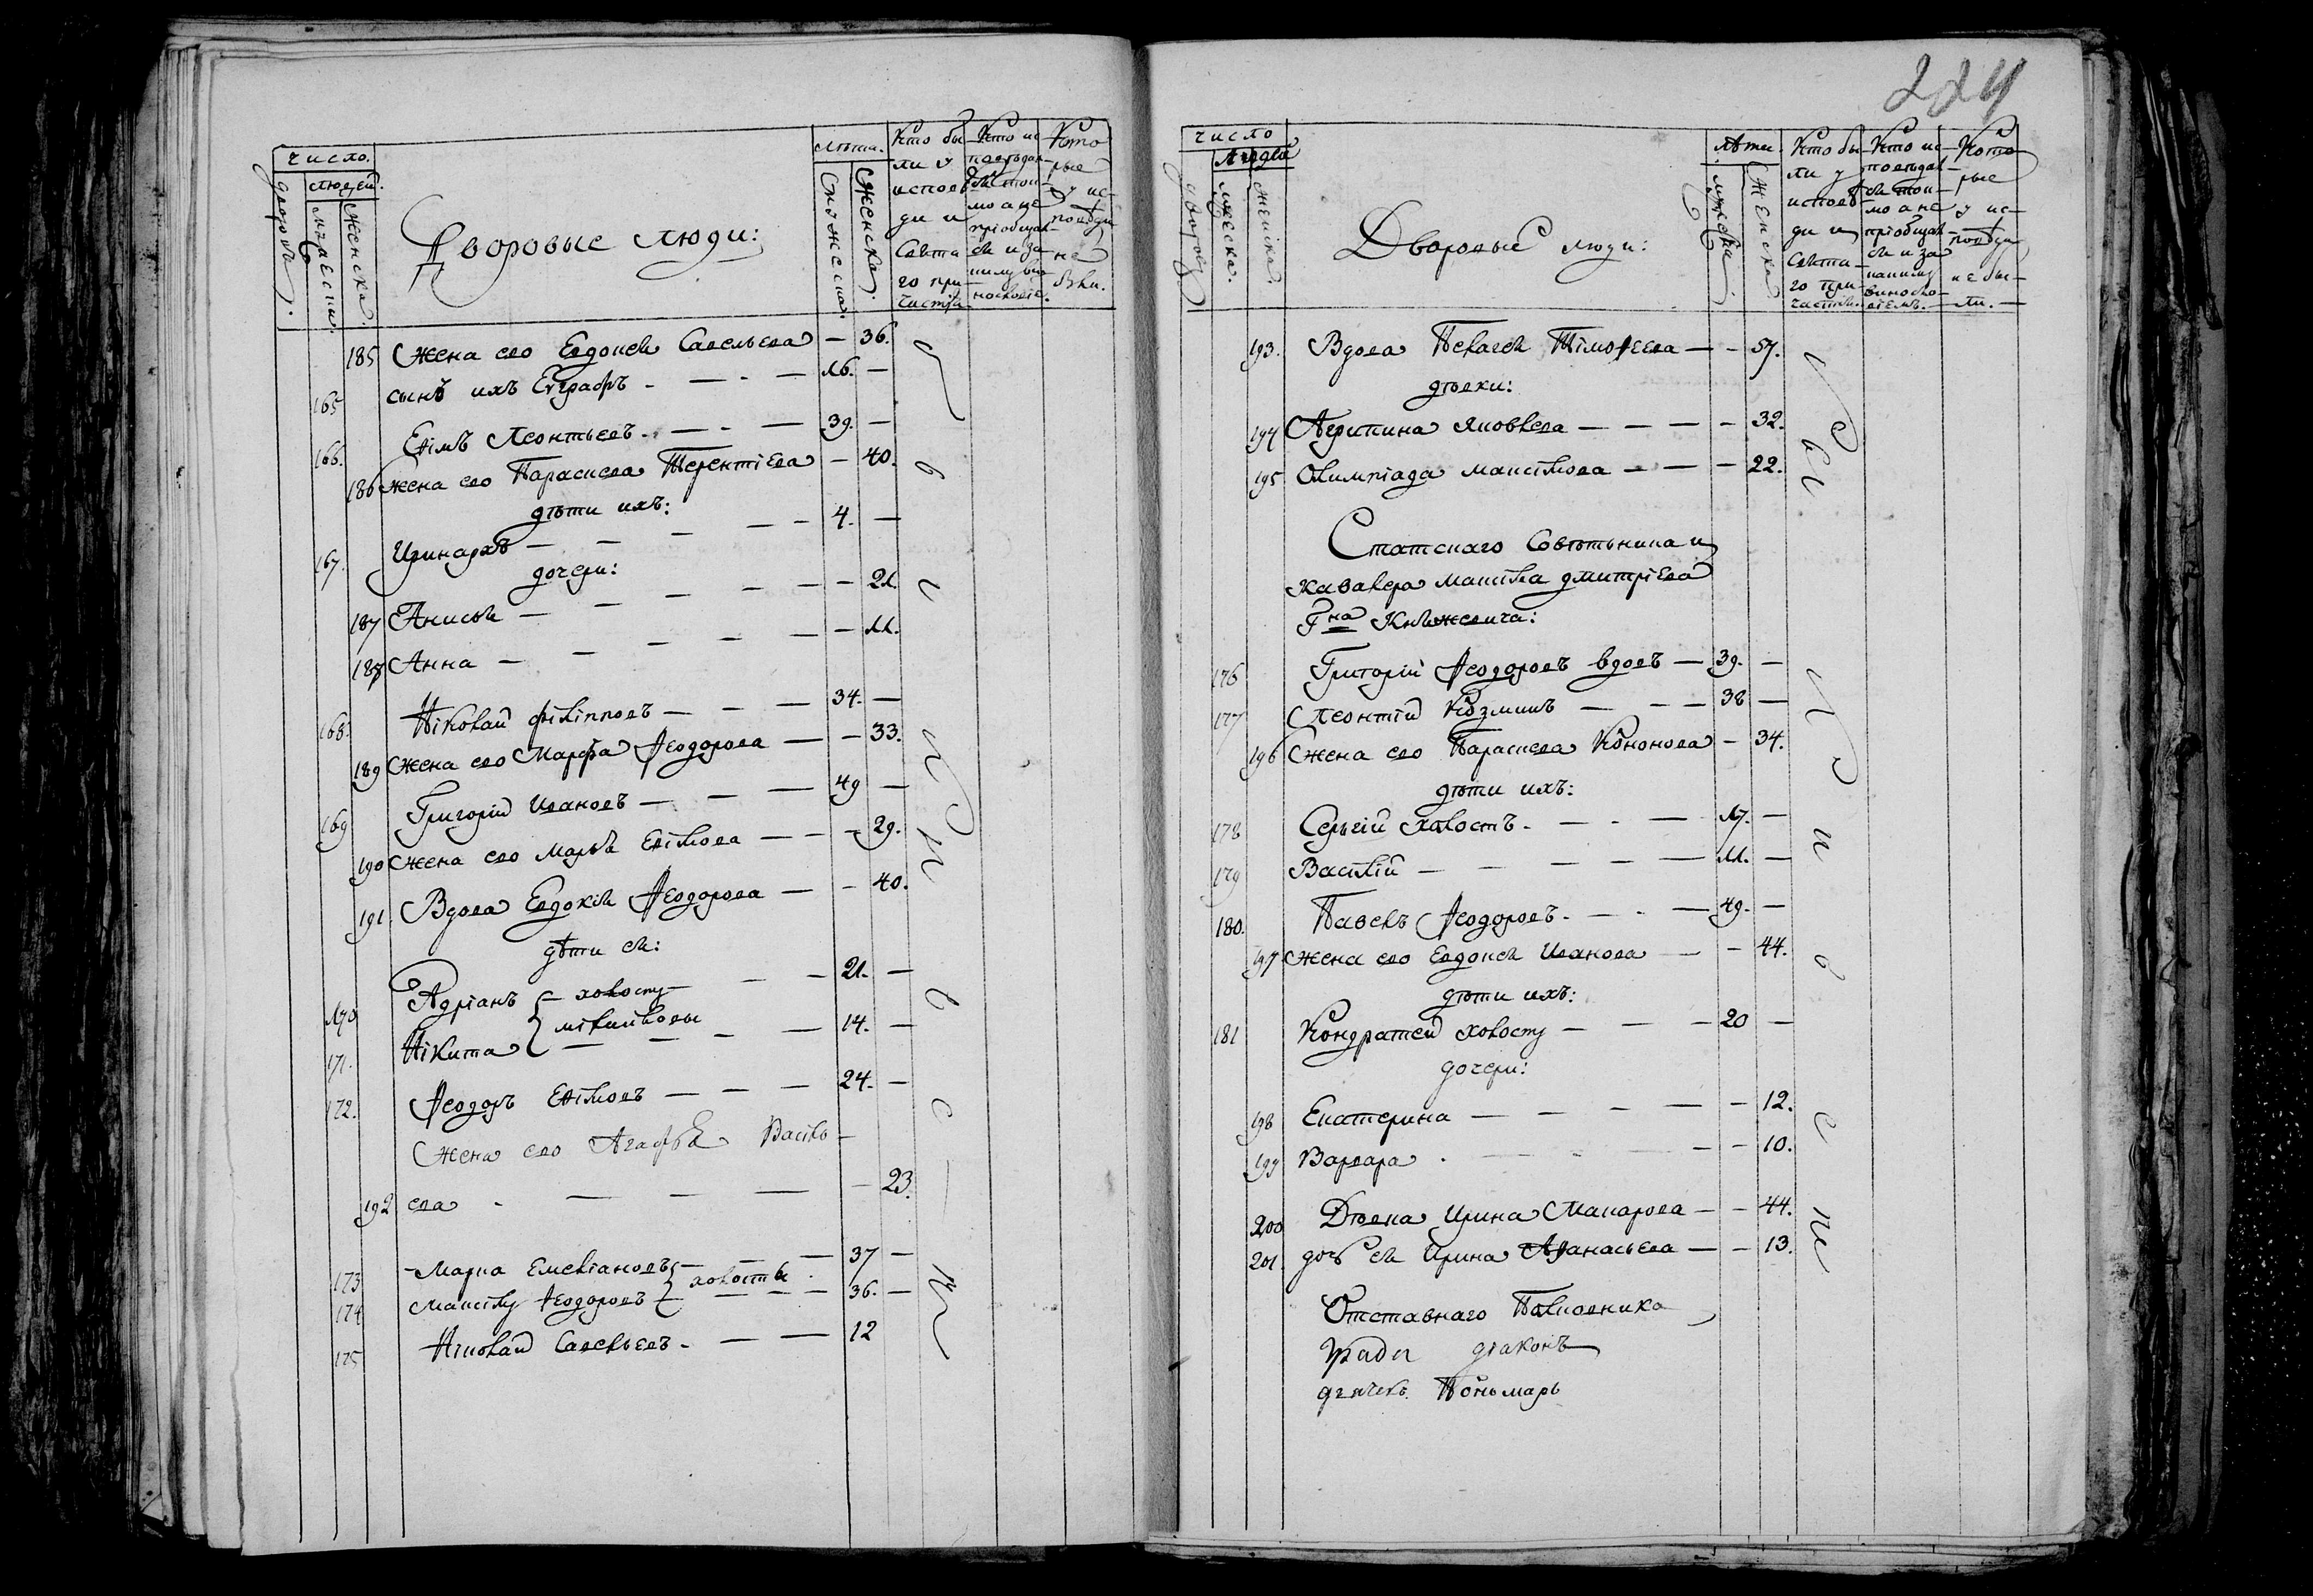 число.
людей.
дворовъ.
мужеска.
женска.
Дворовые люди:
лѣта.
мужеска.
женска.
Кто бы
ли у
исповѣ
ди и
Свята
го при
частія
Кто ис
повѣдал
ся тои
мо а не
пріобщал
ся и за
Кото
рые
у ис
повѣди
не
185 Жена ево Евдокія Савельева — 36.
165 сынъ ихъ Евграфъ - — - — 16. —
166. Ефімъ Леонтьевъ - — - — 39. —
186 Жена ево Параскева Терентіева — 40.
дѣти ихъ:
167. Иринархъ — — — — — 4. —
дочери:
187 Анисія — — — — — — 21.
188 Анна — — — — — — 11.
168. Ніколай Філипповъ — — — 34. —
189 Жена ево Марфа Ѳеодорова — — 33.
169 Григорій Ивановъ — — — 49 —
190 Жена ево Марья Евімова — — — 29.
191 Вдова Евдокія Ѳеодорова — — 40.
дѣти ея:
170 Адріанъ — холосту — — — 21. —
171. Нікита — — — — 14. —
172. Ѳеодоръ Ефімовъ — — — 24. —
Жена ево Агафья Васіль
192 ева - — — — — 23.
173 Марка Емеліановъ — — 37 —
холосты
174 Максімъ Ѳеодоровъ — — — 36. —
175 Ніколай Савельевъ - — — 12
224
число
людей
дворовъ
мужеска.
женска.
Дворовые люди:
лѣта.
мужеска.
женска
Кто бы
ли у
исповѣ
ди и
Свята
го при
частія.
Кто ис
повѣдал
ся тои
мо а не
пріобщал
ся и за
Кото
рые
у ис
повѣди
не бы
ли. —
193. Вдова Пелагея Тімоѳеева — — 57.
дѣвки:
194 Агрипина Яковлева — — — — 32.
195 Олимпіада Максімова — — — 22.
Статскаго Совѣтника и
Кавалера Максіма Дмитріева
Гна Княжевича:
176 Григорій Ѳеодоровъ вдовъ — 39. —
177 Леонтій Козминъ — — — 38 —
196 Жена ево Параскева Кононова — 34.
дѣти ихъ:
178 Сергій холостъ. — - — 17. —
179 Васілій — — — — — 11. —
180. Павелъ Ѳеодоровъ. — - — 49. —
197 Жена ево Евдокія Иванова — — 44.
дѣти ихъ:
181 Кондратей холосту — — — 20 —
дочери:
198 Екатерина — — — — — 12.
199 Варвара - — - — — — 10.
200 Дѣвка Ирина Макарова — — 44.
201 дочь ея Ирина Аѳанасьева — — 13.
Отставнаго Полковника
діаконъ
Пономарь